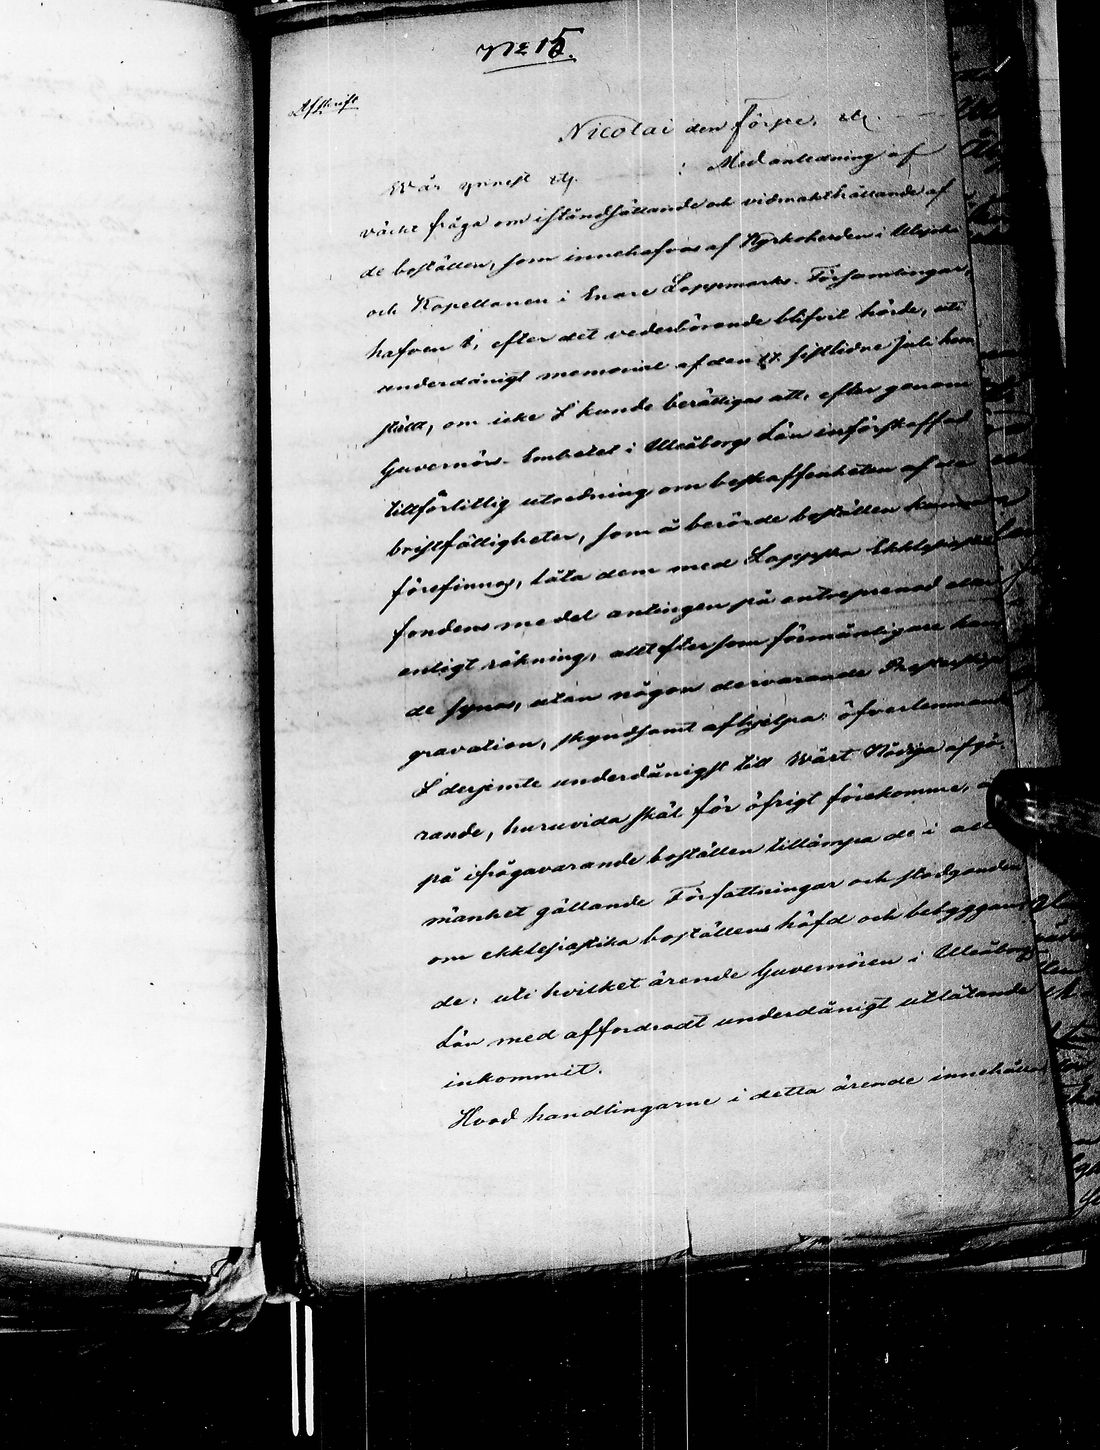 No 15.
Afskrift
Nicolai den Förste, etc.
Wår ynnest etc. : Med anledning af
väckt fråga om iståndsättande och vidmakthållande af
de boställen, som innehafvas af Kyrkoherden i Utsjoki
och Kapellanen i Enare Lappmarks-Församlingar,
hafven I, efter det vederbörande blifvit hörde, uti
underdånigt memorial af den 17. sistlidne Juli hem
ställt, om icke I kunde berättigas att, efter genom
Guvernörs-Embetet i Uleåborgs Län införskaffad
tillförlitlig utredning om beskaffenheten af de
bristfälligheter, som å berörde boställen kunna
förefinnas, låta dem med Lappska Ekklesiastik
fondens medel antingen på entreprenad eller
enligt räkning, alltefter som förmånligare kun
de synas, utan någon dervarande Presterskaps
gravation, skyndsamt afhjelpa: öfverlemnande
I derjemte underdånigst till Wårt Nådiga afgö-
rande, huruvida skäl för öfrigt förekomme, att
på ifrågavarande boställen tillämpa de i all
mänhet gällande Författningar och stadganden
om ekklesiastika boställens häfd och bebyggan
de; uti hvilket ärende Guvernören i Uleåborgs
Län med affordradt underdånigt utlåtande
inkommit.
Hvad handlingarne i detta ärende innehålla